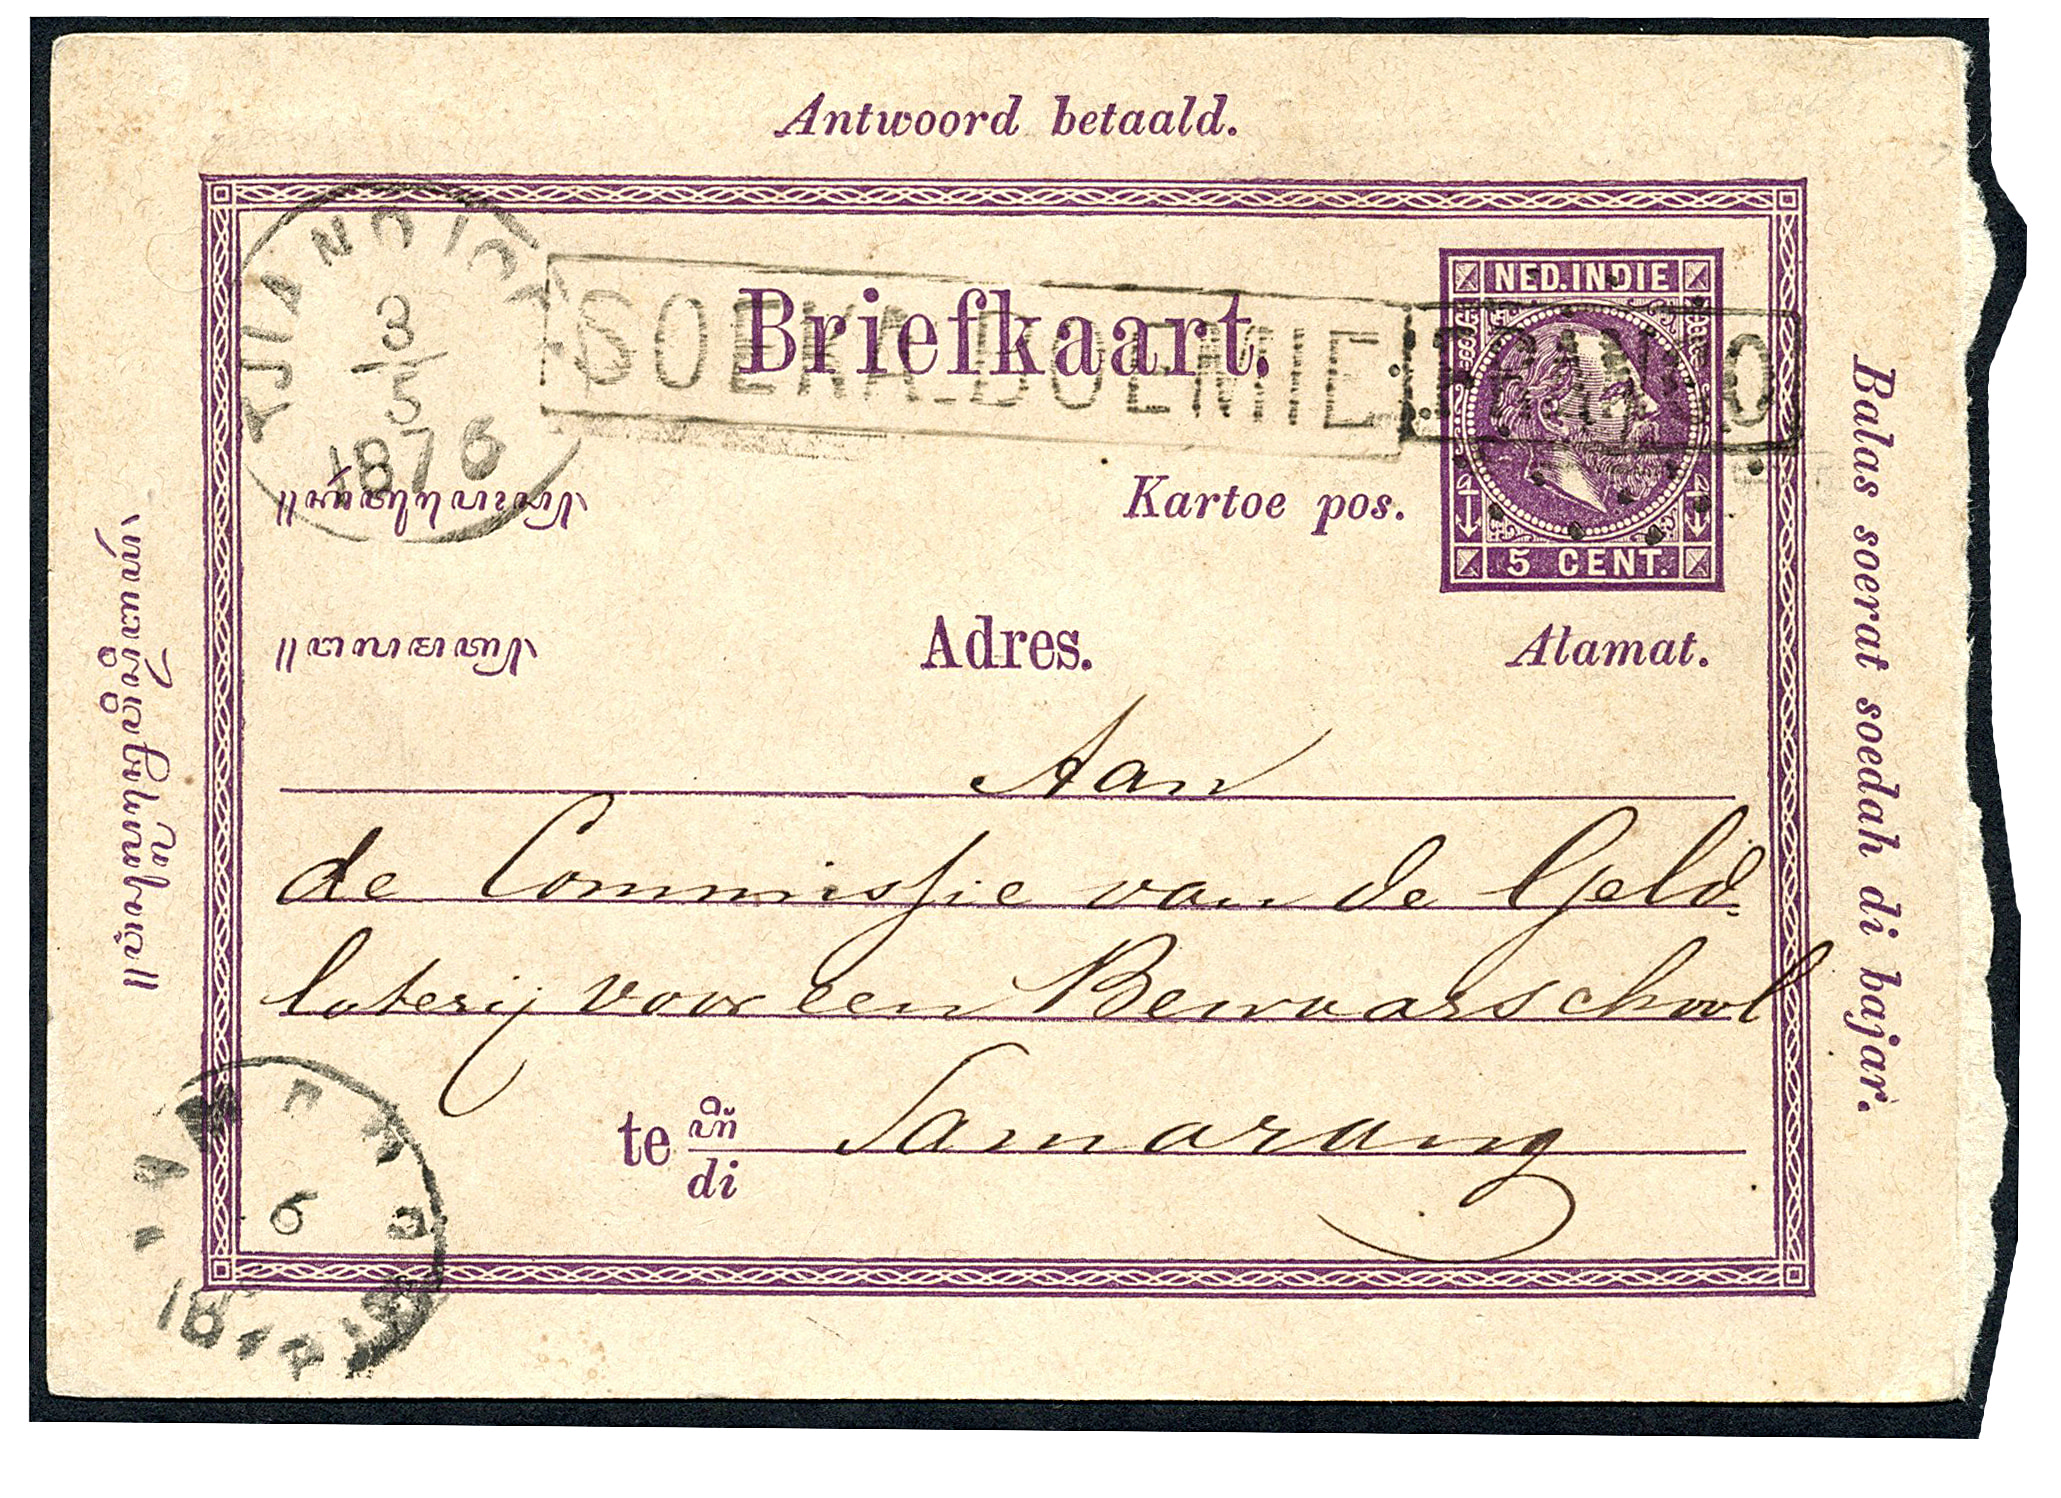 Antwoord betaald.
TJIANDJOER
3
5
1876
SOEKA-BOEMIE
FRANCO
NED.INDIE
Briefkaart.
Kartoe pos.
5 CENT.
Adres.
Alamat.
Aan
de Commissie van de Geld-
loterij voor een Bewaarschool
te di Samarang
Balas soerat soedah di bajar.
6